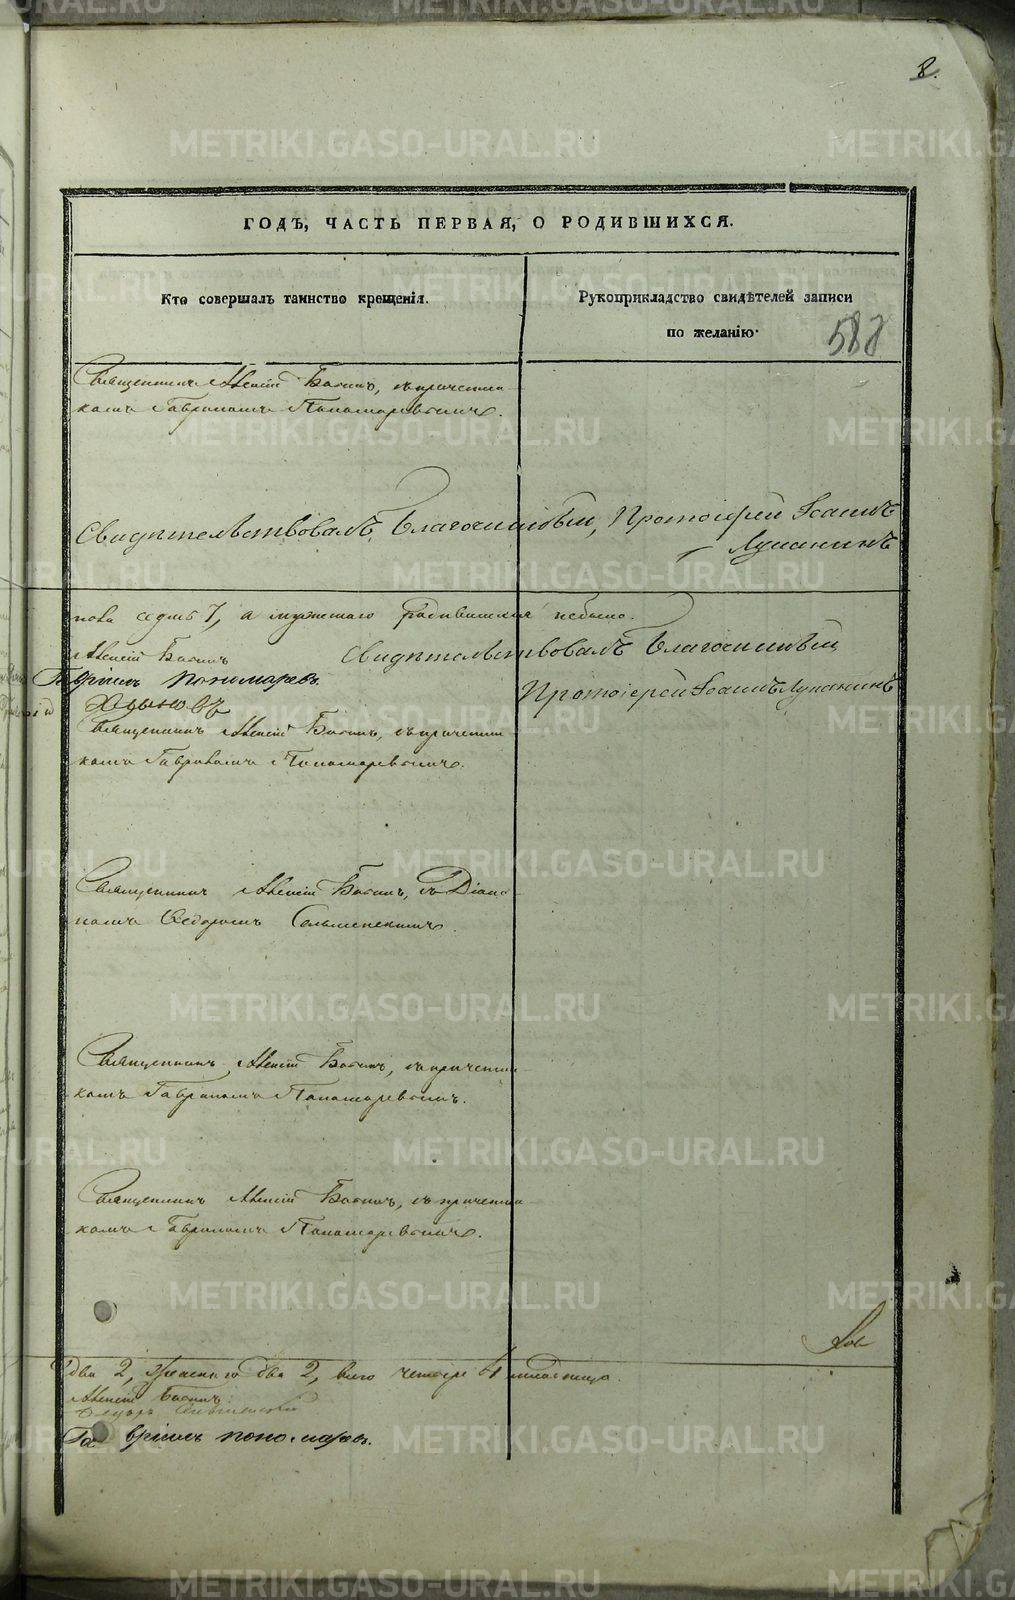 8.
ГОДЪ, ЧАСТЬ ПЕРВАЯ, О РОДИВШИХСЯ.
Кто совершалъ таинство крещенія.
Рукоприкладство свидѣтелей записи
по желанію.
588
Священникъ Алексій Басинъ, съ причетни
комъ Гавриломъ Панамаревымъ.
Свидѣтельствовалъ Благочинный, Протоіерей Іоаннъ
Лукан
седмь 7, а мужскаго родившихся небыло.
Алексій Басинъ
Свидѣтельствовалъ Благочинный
Гавріилъ пономаревъ.
Протоіерей Іоаннъ Лукан
Священникъ Алексій Басинъ, съ причетни
комъ Гавриломъ Панамаревымъ.
Священникъ Алексій Басинъ, съ Діако
номъ Ѳедоромъ
Священникъ Алексій Басинъ, съ причетни
комъ Гавриломъ Панамаревымъ.
Священникъ Алексій Басинъ, съ причетни
комъ Гавриломъ Панамаревымъ.
два 2, женскаго два 2, всего четыре 4 младенца.
Алексій Басинъ
Гавріилъ пономаревъ.
METRIKI.GASO-URAL.RU